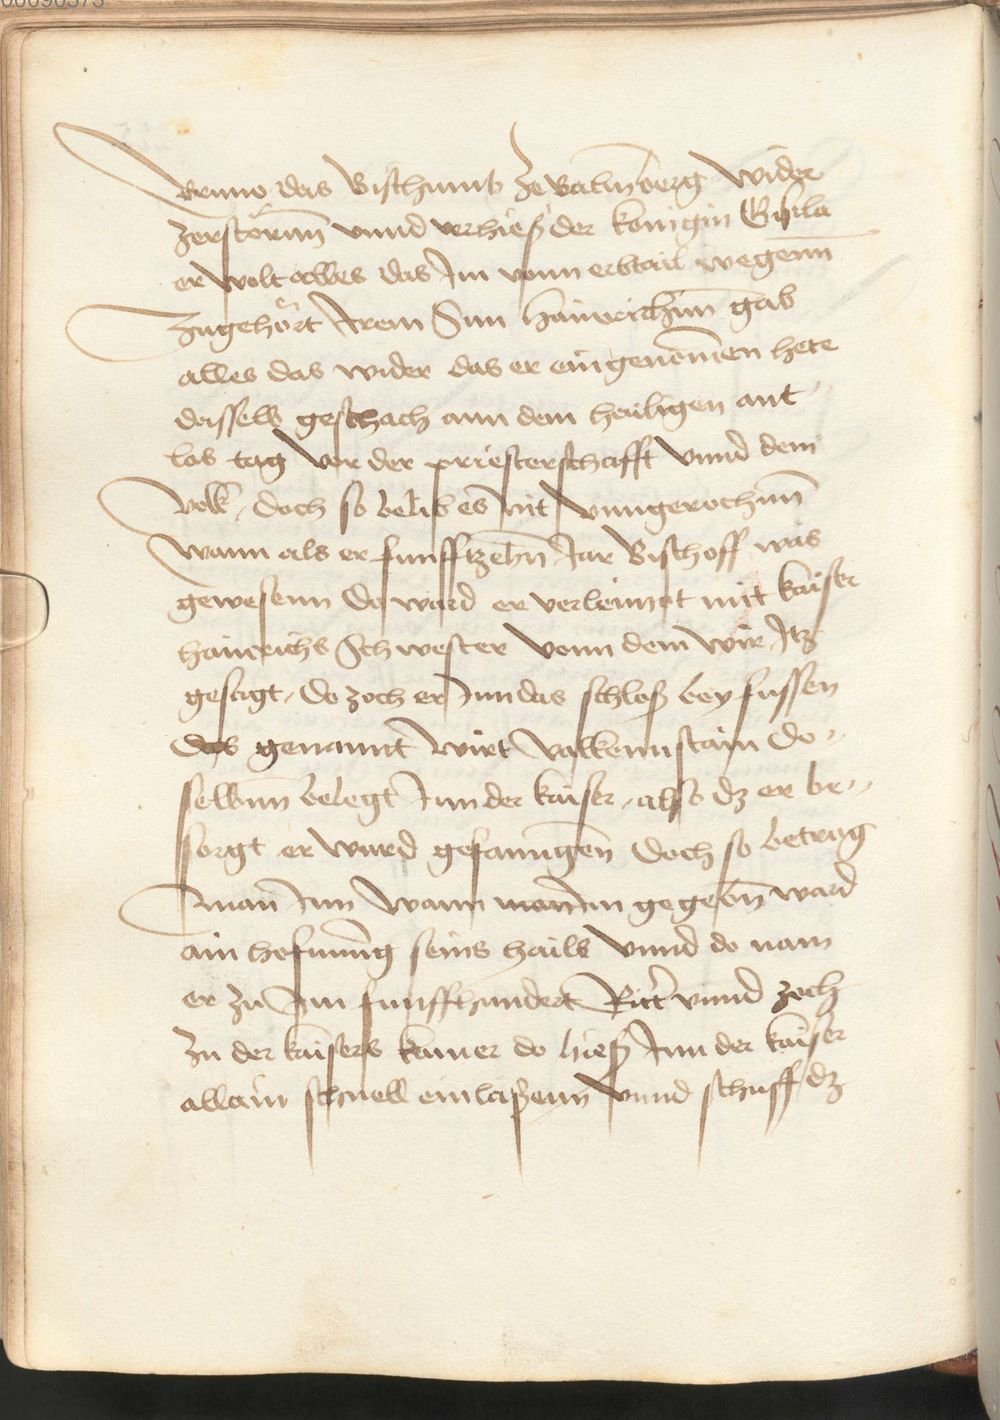 00090373
Bruno das Bisthumb ze Balmberg wider
zerstörnn vnnd verhieß der konigin Gisila
er wolt alles das Im vonn erbtail wegenn
zugehört Irem Sun Hainrichnn gab
alles das wider das er eingenomen hete
dasselb geschach ann dem heiligen ant
las tag vor der priesterschafft vnnd dem
volk, doch so belib es nit vnngerochnn
wann als er funfftzehn Jar Bischoff was
gewesenn do ward er verleimot mit kaiser
Hainrichs Schwester vonn dem wir Itz
gesagt, do zoch er Inn das schloß bey fussen
das genannt wirt Valkennstain do-
selbnn belegt Inn der kaiser, also dz er be-
sorgt er wurd gefanngen doch so betrog
man Inn wann Im gegebn ward
ain hofnung seins hails vnnd do nam
er zu Im funffhundert Ritter vnnd zoch
zu der kaisers kamer do hieß Inn der kaiser
allain schnell einlaßenn vnnd schuff dz